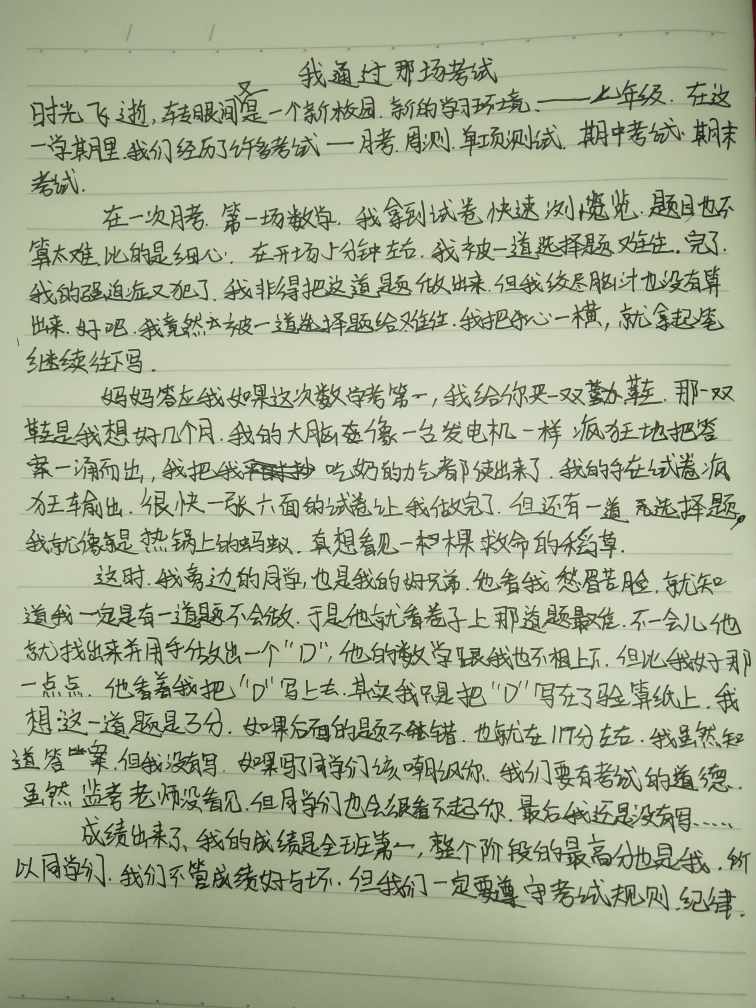 我通过那场考试
时光飞逝，转眼间又是一个新校园.新的学习环境.——七年级.在这
一学期里.我们经历了许多考试—月考.周测.单项测试.期中考试.期末
考试.
在一次月考.第一场数学.我拿到试卷快速浏览览.题目也不
算太难.比的是细心.在开场5分钟左右.我被一道选择题难住.完了.
我的强迫症又犯了.我非得把这道题做出来.但我绞尽脑汁也没有算
出来.好吧.我竟然被一道选择题给难住.我把心一横，就拿起笔
继续往下写.
妈妈答应我如果这次数学考第一，我给你买一双鞋.那一双
鞋是我想好几个月.我的大脑像一台发电机一样疯狂地把答
案一涌而出，我把吃奶的力气都使出来了.我的手在试卷疯
狂输出.很快一张六面的试卷让我做完了.但还有一道选择题，
我就像是热锅上的蚂蚁.真想看见一棵救命的稻草.
这时.我旁边的同学，也是我的好兄弟.他看我愁眉苦脸.就知
道我一定是有一道题不会做.于是他就看卷子上那道题最难.不一会儿他
就找出来并用手做出一个“D”，他的数学跟我也不相上下.但比我好那
一点点.他看着我把“D”写上去.其实我只是把“D”写在了验算纸上.我
想这一道题是3分.如果后面的题不错.也就在117分左右.我虽然知
道答案.但我没有写.如果写了同学们该嘲讽你.我们要有考试的道德.
虽然监考老师没看见.但同学们也会很看不起你.最后我还是没有写……
成绩出来了.我的成绩是全班第一，整个阶段的最高分也是我.所
以同学们.我们不管成绩好与坏.但我们一定要遵守考试规则.纪律.